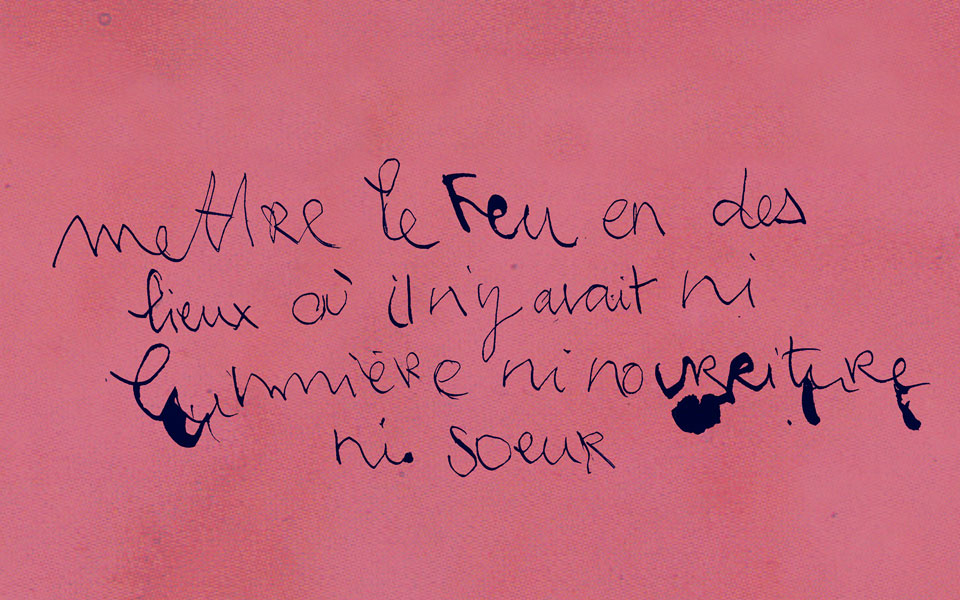 mettre le Feu en des
lieux où il n'y avait ni
lummière ni nourriture
ni soeur